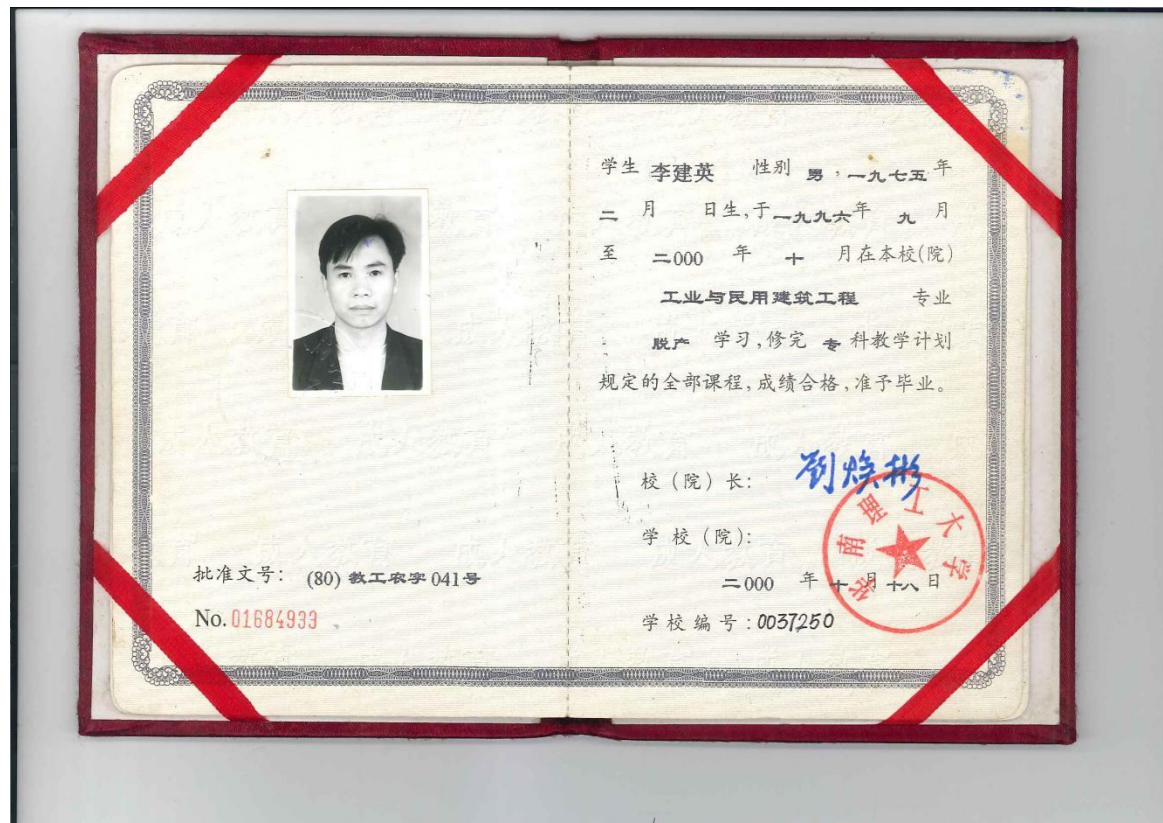 批准文号： (80) 教工农字041号
No. 01684933
学生 李建英 性别 男，一九七五年
二 月 日生,于一九九六年 九 月
至 二000 年 十 月在本校(院)
工业与民用建筑工程 专业
脱产 学习,修完 专 科教学计划
规定的全部课程,成绩合格,准予毕业。
校（院）长： 刘焕彬
学校（院）：
华南理工大学
二000 年 十 月 十八 日
学校编号：0037250